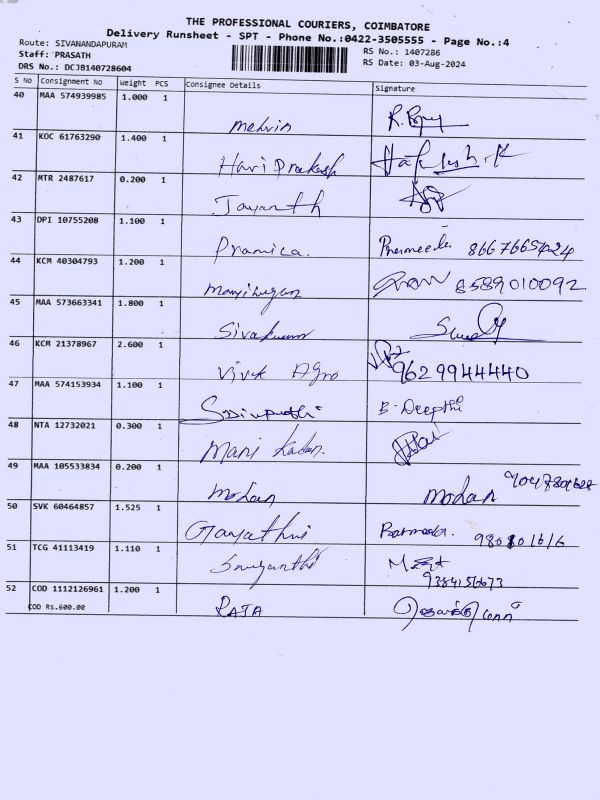 THE PROFESSIONAL COURIERS, COIMBATORE
Delivery Runsheet - SPT - Phone No.:0422-3505555 - Page No.:4
Route: SIVANANDAPURAM
Staff: PRASATH
DRS No.: DCJB140728604
RS No.: 1407286
RS Date: 03-Aug-2024
S NO Consignment No Weight PCS Consignee Details Signature
40 MAA 574939985 1.000 1
melvin
41 KOC 61763290 1.400 1
Hari Prakash
42 MTR 2487617 0.200 1
Jayanth
43 DPI 10755208 1.100 1
Pramila.
44 KCM 40304793 1.200 1
8589010092
45 MAA 573663341 1.800 1
Sivakumar
46 KCM 21378967 2.600 1
Vivek Agro 9629944440
47 MAA 574153934 1.100 1
B. Deepthi
48 NTA 12732021 0.300 1
Mani kadan.
49 MAA 105533834 0.200 1
mohan mohan
50 SVK 60464857 1.525 1
Gayathri
51 TCG 41113419 1.110 1
52 COD 1112126961 1.200 1
COD Rs.600.00
RAJA